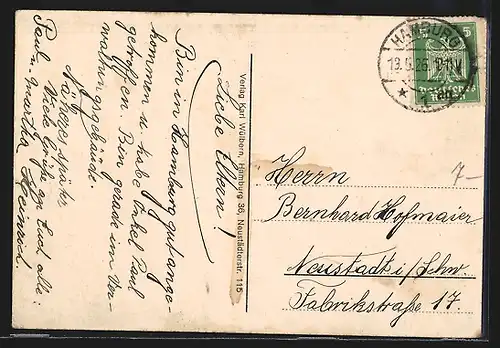 Liebe Eltern!
Bin in Hamburg gut ange-
kommen u. habe Onkel Paul
getroffen. Bin gerade im Ver-
waltungsgebäude.
Näheres später.
Viele Grüße an Euch alle:
Paul u. Martha Heinrich.
Verlag Karl Wülbern, Hamburg 36, Neustädterstr. 115
HAMBURG
5
1
7-
Herrn
Bernhard Hofmaier
Neustadt i/Schw.
Fabrikstraße 17